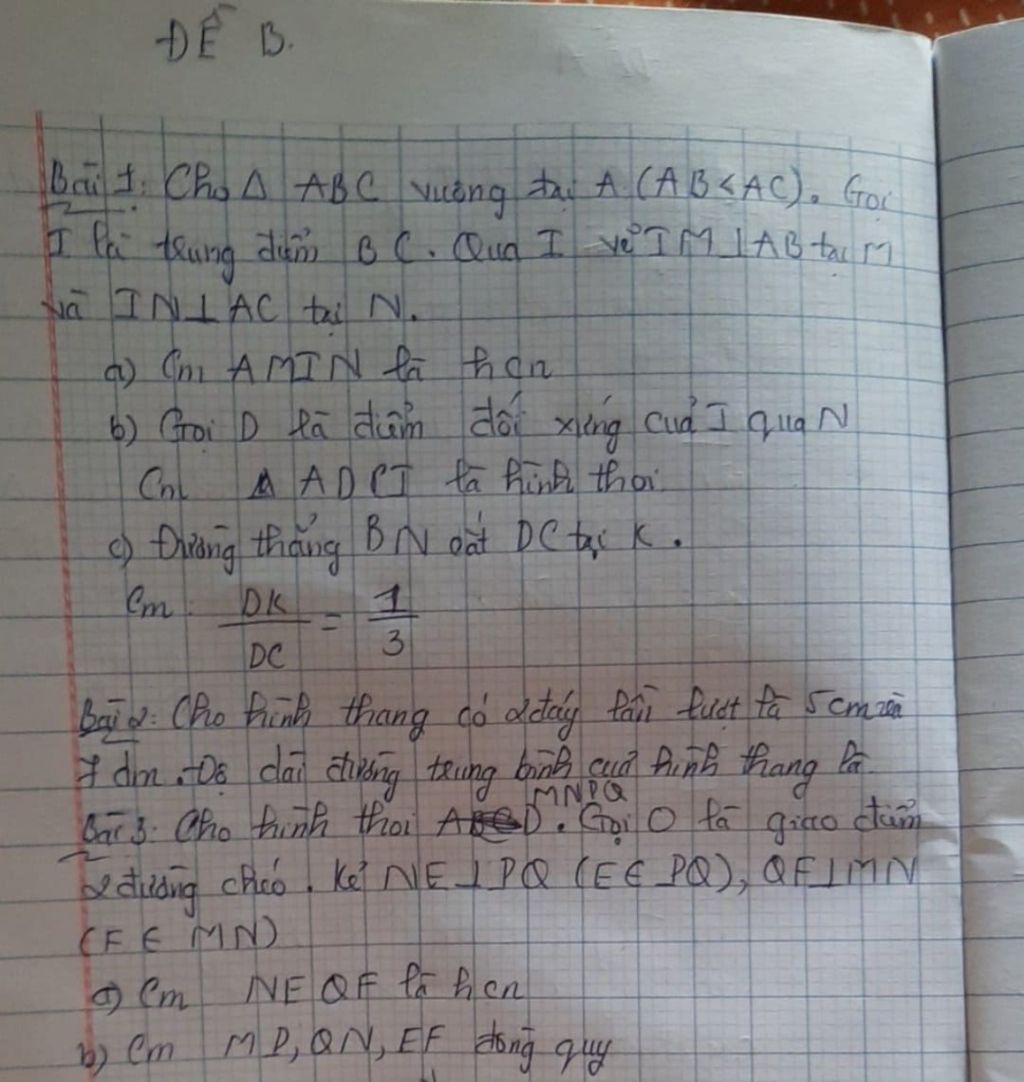 ĐỀ B.
Bài 1: Cho Δ ABC vuông tại A (AB < AC). Gọi
I là trung điểm BC. Qua I vẽ IM ⊥ AB tại M
và IN ⊥ AC tại N.
a) Cm AMIN là hcn
b) Gọi D là điểm đối xứng của I qua N
Cm ADCI là hình thoi
c) Đường thẳng BN cắt DC tại K.
Cm DK/DC = 1/3
Bài 2: Cho hình thang có 2 đáy lần lượt là 5cm và
7 dm. Độ dài đường trung bình của hình thang là
Bài 3: Cho hình thoi MNPQ. Gọi O là giao điểm
2 đường chéo. Kẻ NE ⊥ PQ (E ∈ PQ), QF ⊥ MN
(F ∈ MN)
a) Cm NEQF là hcn
b) Cm MP, QN, EF đồng quy